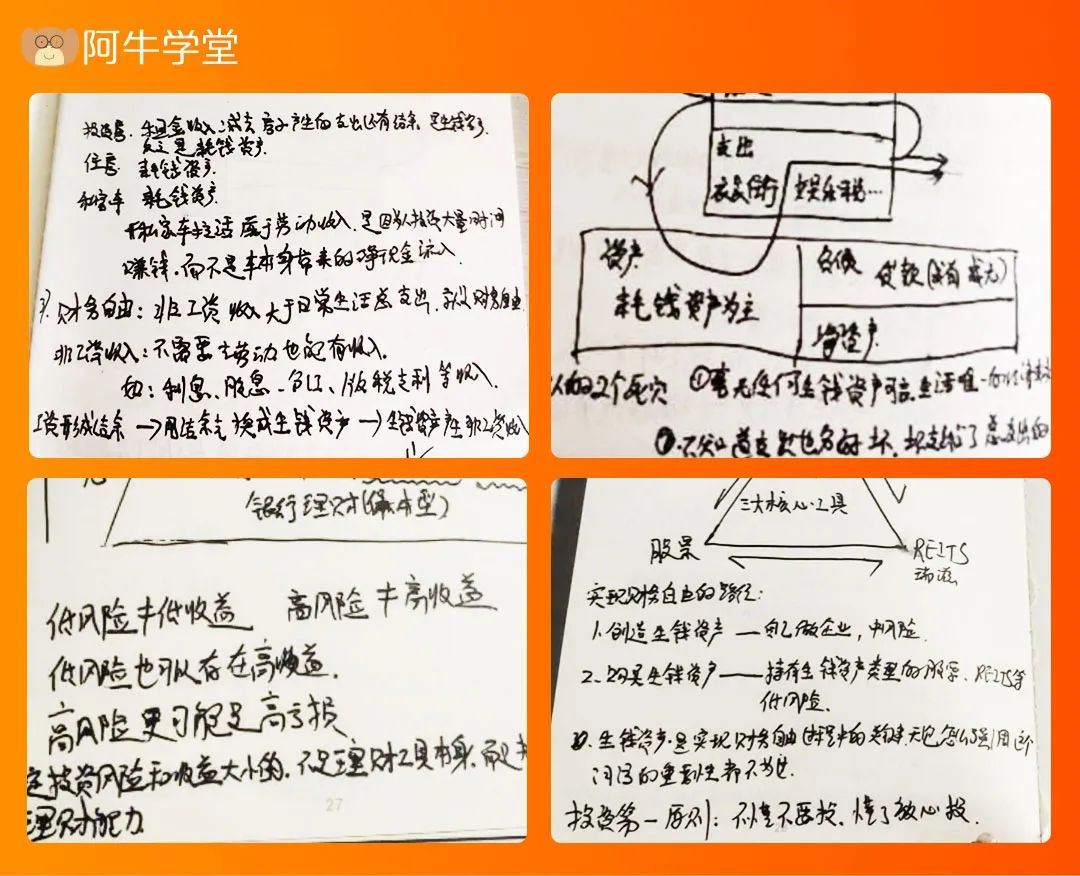 阿牛学堂
投资房：租金收入减去房子产生的支出还有结余，是生钱资产
反之是耗钱资产.
住房 耗钱资产.
私家车 耗钱资产.
开私家车拉活属于劳动收入，是因为人投资大量时间
赚钱，而不是车本身带来的净现金流入
财务自由：非工资收入大于日常生活总支出，就财务自由
非工资收入：不需要去劳动也能有收入.
如：利息、股息、分红、版税专利等收入.
工资形成结余→用结余去换成生钱资产→生钱资产产生非工资收入
支出
衣食住行 娱乐税…
资产
耗钱资产为主
负债 贷款(或有或无)
净资产
的2个死穴 ①毫无任何生钱资产可言，生活唯一的
②不知道支出也分好坏，
银行理财(保本型)
低风险≠低收益 高风险≠高收益
低风险也可以存在高收益.
高风险更可能是高亏损
定投资风险和收益大小的，不是理财工具本身，而是
理财能力
27
三大核心工具
股票 REITS
瑞滋
实现财务自由的路径：
1.创造生钱资产——自己做企业，中风险.
2.购买生钱资产——持有生钱资产类型的股票、REITS等
低风险.
生钱资产是实现财务自由过程中的关键，无论怎么强调这个
词语的重要性都不为过.
投资第一原则：不懂不要投、懂了放心投.